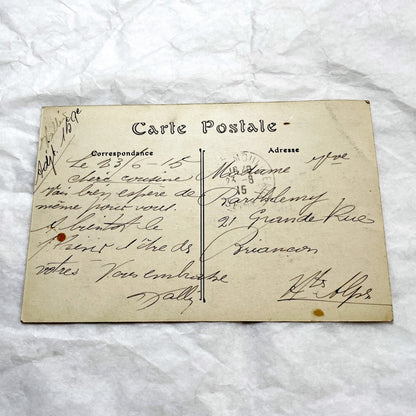 Carte Postale
Correspondance
Adresse
Le 23/6-15
Cher cousine
Vais bien espère de
même pour vous
A bientôt le
l'être des
vôtres Vous embrasse
Adjt
Madame Vve
Barthélemy
21 Grande Rue
Briançon
Htes Alpes
15